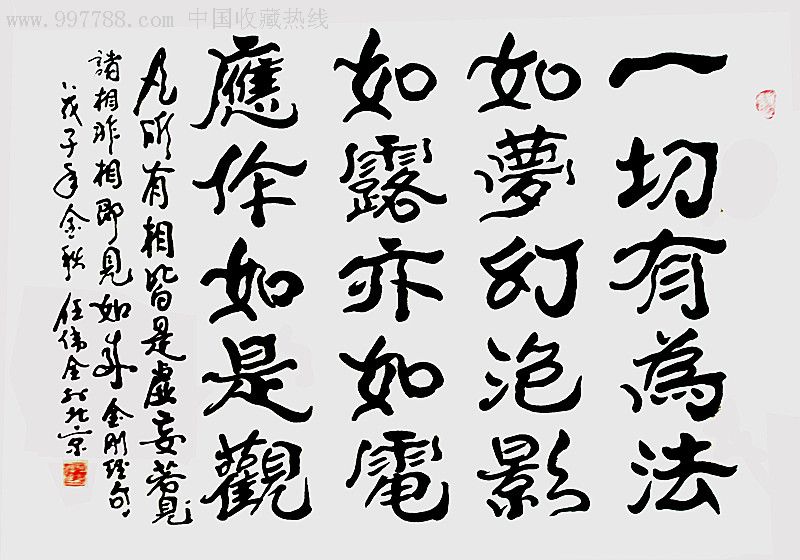 www.997788.com 中国收藏热线
一切有為法
如夢幻泡影
如露亦如電
應作如是觀
凡所有相皆是虛妄若見
諸相非相即見如來 金剛經句
戊子年金秋 任伟 於北京